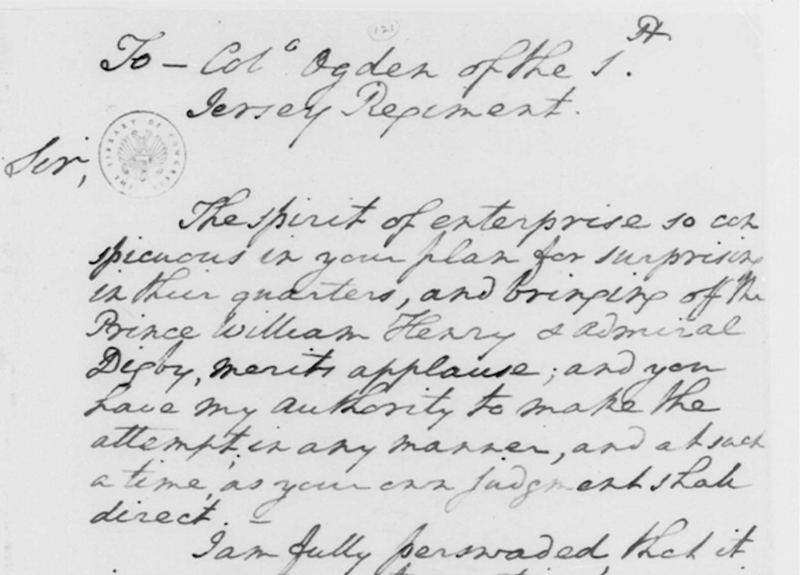 121
To — Colo Ogden of the 1.st
Jersey Regiment.
THE LIBRARY OF CONGRESS
Sir,
The spirit of enterprise so con
spicuous in your plan for surprising
in their quarters, and bringing off the
Prince William Henry & Admiral
Digby, merits applause; and you
have my authority to make the
attempt, in any manner, and at such
a time, as your own judgment shall
direct. —
I am fully perswaded, that it